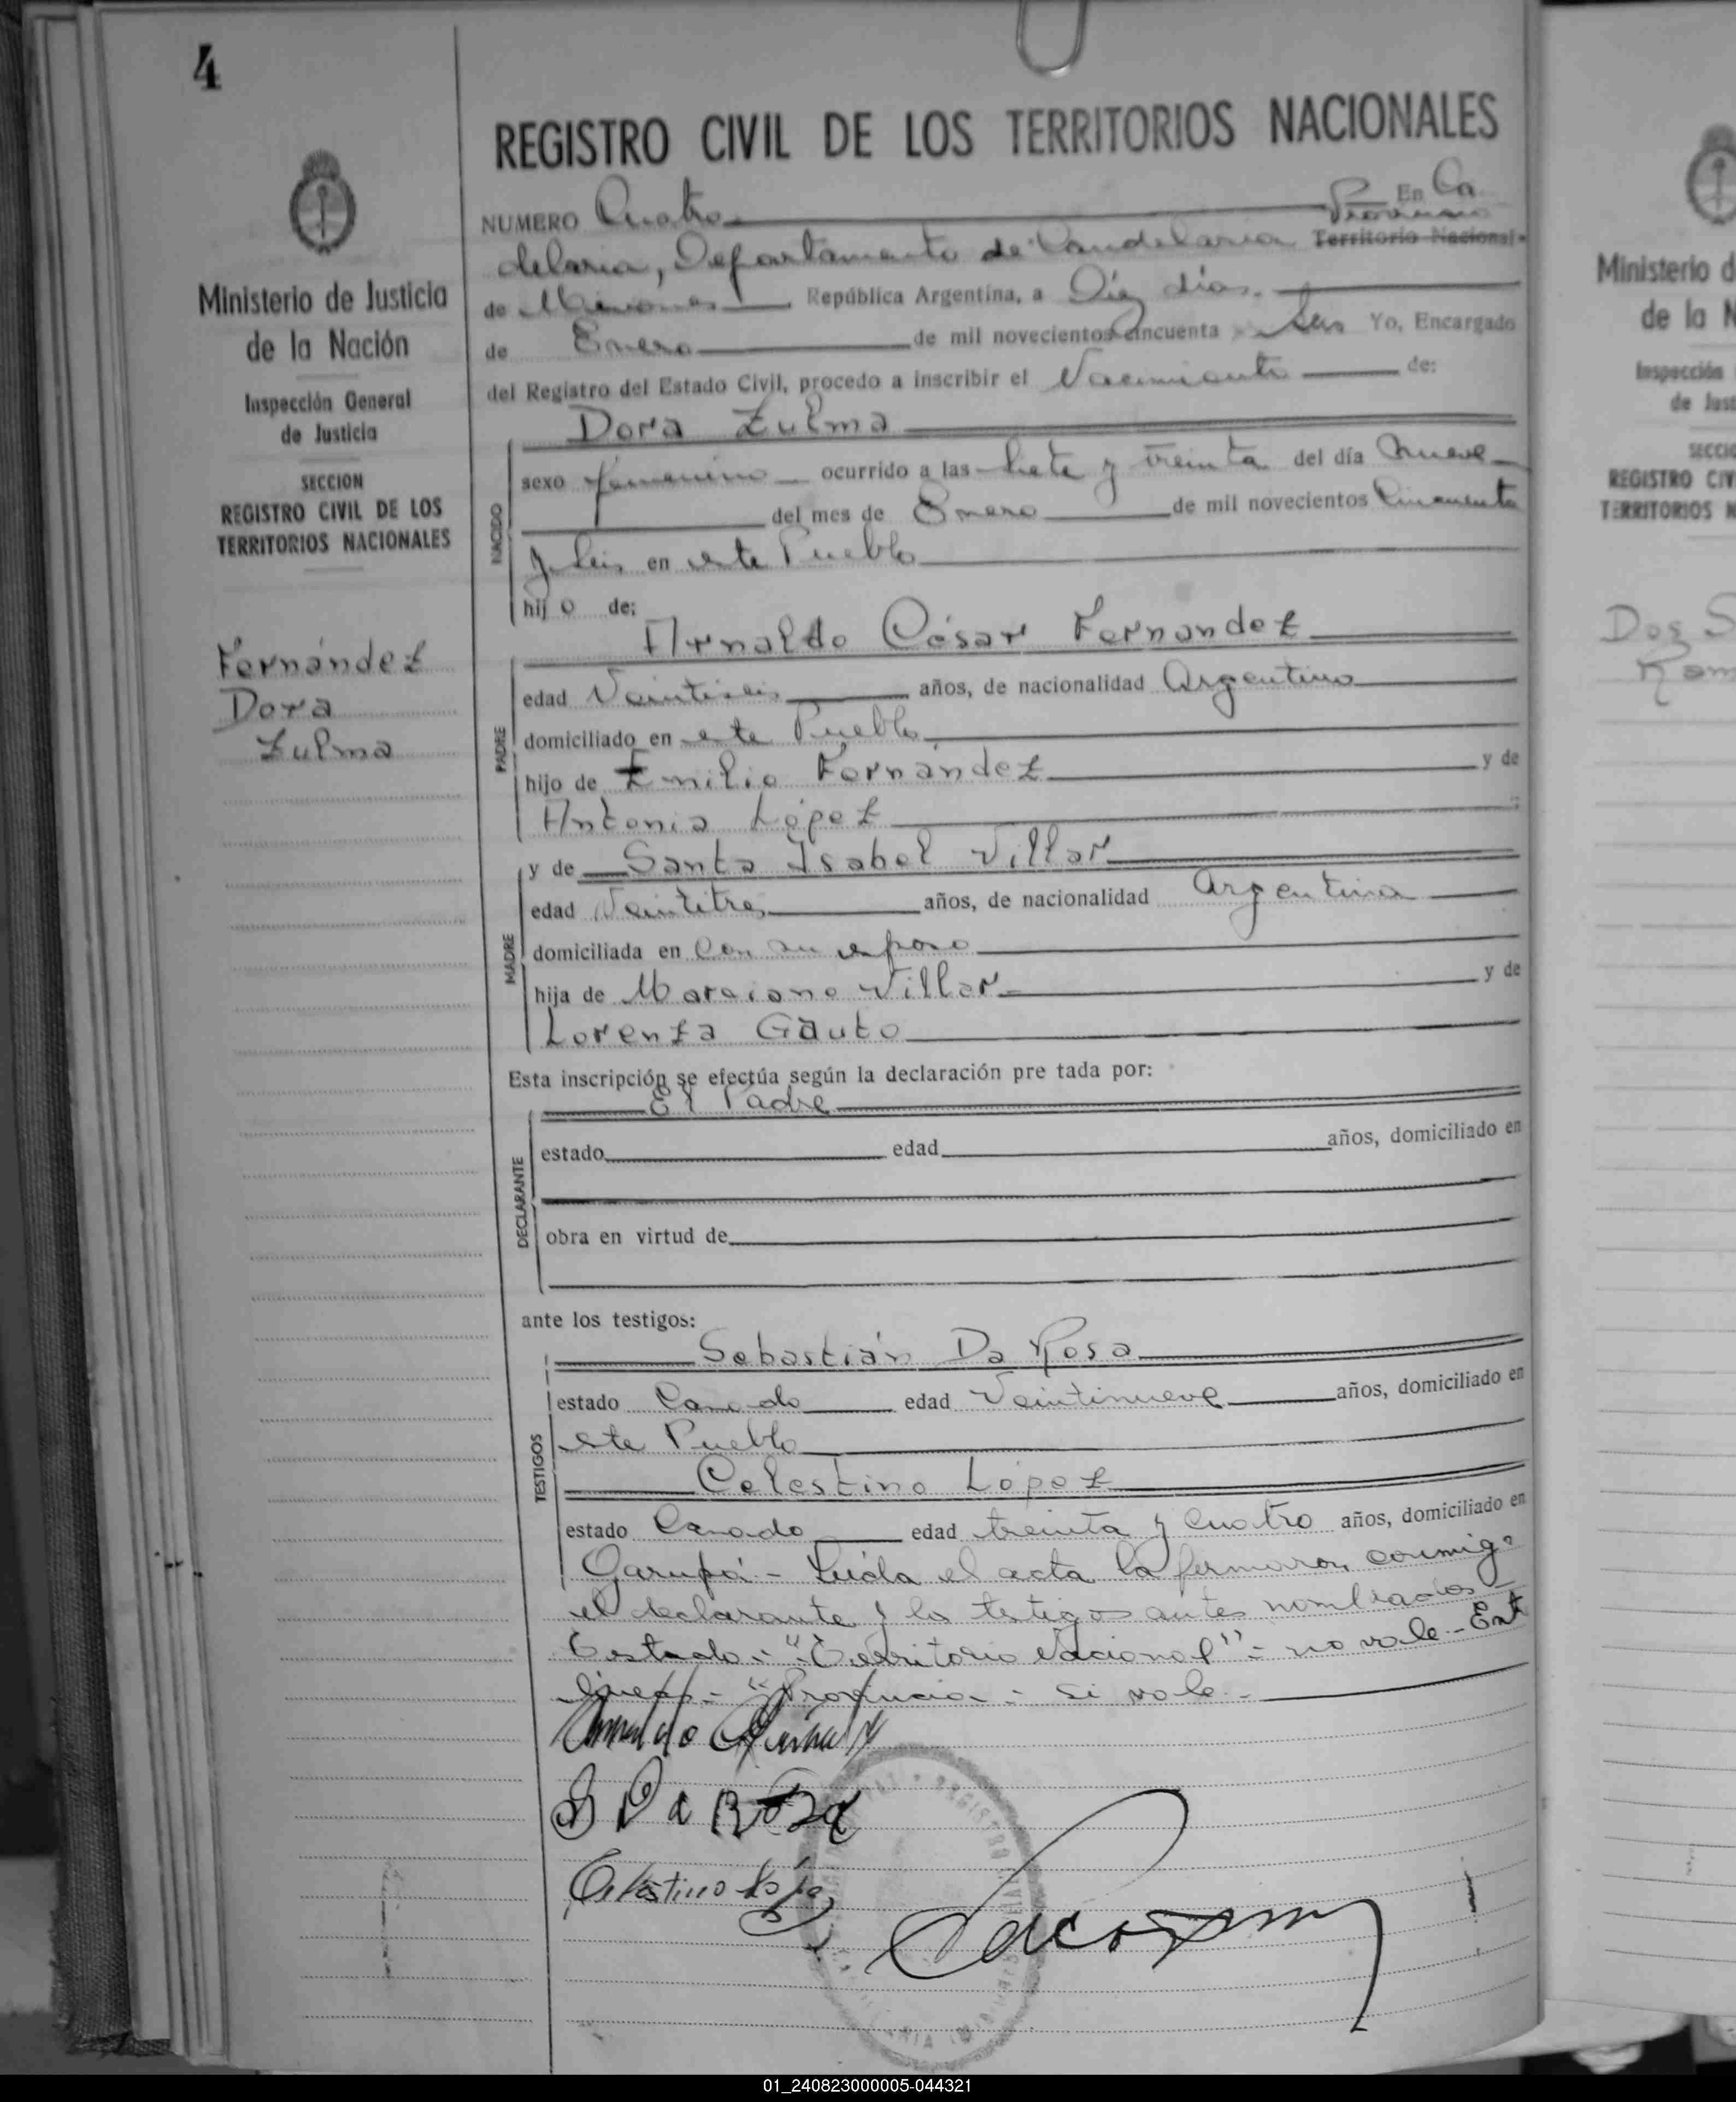 4
REGISTRO CIVIL DE LOS TERRITORIOS NACIONALES
NUMERO Cuatro En Ca
Provincia
delaria, Departamento de Candelaria Territorio Nacional
de Misiones República Argentina, a Diez días
de Enero de mil novecientos cincuenta y Seis Yo, Encargado
del Registro del Estado Civil, procedo a inscribir el Nacimiento de:
Dora Zulma
NACIDO
sexo femenino ocurrido a las Siete y treinta del día Nueve
del mes de Enero de mil novecientos Cincuenta
y Seis en este Pueblo
hij o de:
Arnaldo César Fernandez
PADRE
edad Veintiseis años, de nacionalidad Argentino
domiciliado en este Pueblo
hijo de Emilio Fernández y de
Antonia López
y de Santa Isabel Villar
MADRE
edad Veintitres años, de nacionalidad Argentina
domiciliada en Con su esposo
hija de Marciano Villar y de
Lorenza Gauto
Esta inscripción se efectúa según la declaración pre tada por:
El Padre
DECLARANTE
estado edad años, domiciliado en
obra en virtud de
ante los testigos:
Sebastián Da Rosa
TESTIGOS
estado Casado edad Veintinueve años, domiciliado en
este Pueblo
Celestino López
estado Casado edad treinta y cuatro años, domiciliado en
Garupá - Leída el acta la firmaron conmigo
el declarante y los testigos antes nombrados -
Testado: "Territorio Nacional" - no vale - Ent
líneas - "Provincia - Si vale -
S Da Rosa
Celestino López
Ministerio de Justicia
de la Nación
Inspección General
de Justicia
SECCION
REGISTRO CIVIL DE LOS
TERRITORIOS NACIONALES
Fernández
Dora
Zulma
Ministerio d
de la N
Inspección
de Just
SECCIO
REGISTRO CIV
TERRITORIOS N
01_240823000005-044321